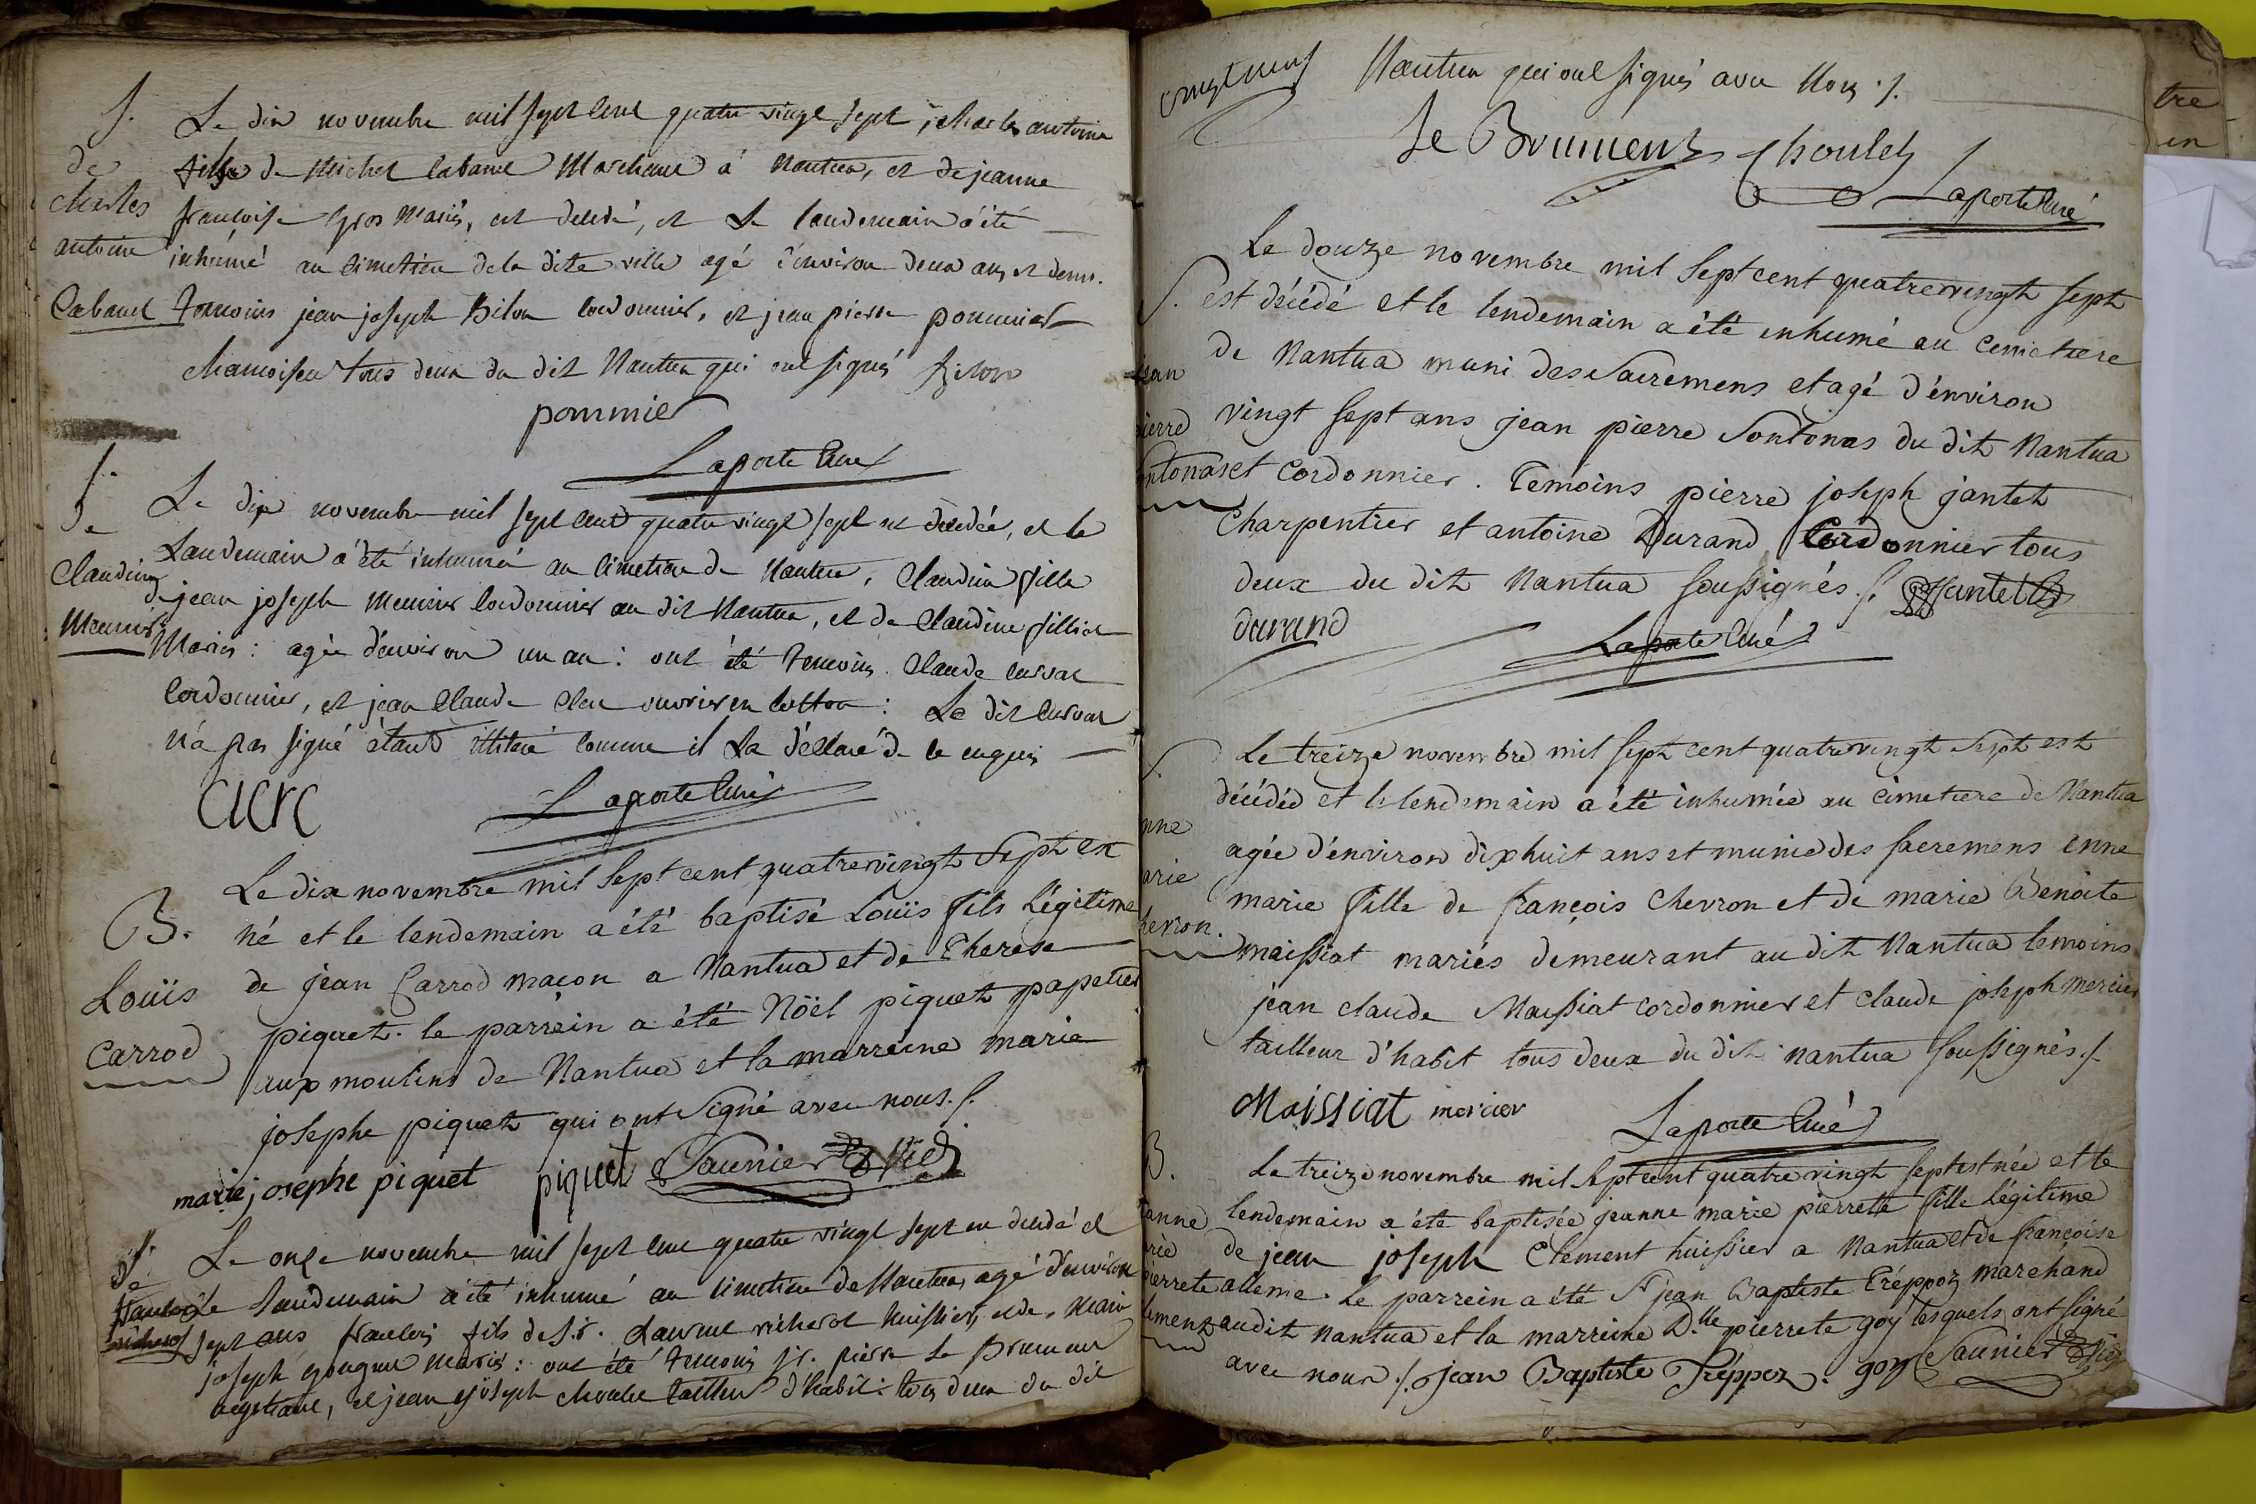 S.
de
charles
antoine
Cabanet
Le dix novembre mil sept cent quatre vingt sept, charles antoine
fils de Michel Cabanet Marchand à Nantua, et de jeanne
francoise gros Mariés, est decedé, et le landemain a été
inhumé au cimetiere de la dite ville agé d'environ deux ans et demi.
temoins jean joseph Bilon cordonnier, et jean pierre pommier
chamoiseur tous deux du dit Nantua qui ont signés Bilon
pommier
Laporte Curé
S.
de
Claudine
Meunier
Le dix novembre mil sept cent quatre vingt sept est décedée, et le
Landemain a été inhumée au cimetiere de Nantua, Claudine fille
de jean joseph Meunier Cordonnier au dit Nantua, et de Claudine filliat
Mariés : agée d'environ un an : ont été temoins Claude curvat
Cordonnier, et jean Claude Clerc ouvrier en cotton : Le dit Curvat
n'a pas signé étant illitéré comme il la déclaré de ce enquis
Clerc
Laporte Curé
B.
Louïs
Carrod
Le dix novembre mil sept cent quatrevingt sept est
né et le lendemain a été baptisé Louïs fils légitime
de jean Carrod maçon a Nantua et de Therese
piquet. le parrein a été Nöel piquet papetier
aux moulins de Nantua et la marreine marie
josephe piquet qui ont signé avec nous ./.
marie josephe piquet piquet Saunier Vic
S.
de
francois
richerot
Le onze novembre mil sept cent quatre vingt sept est decedé et
le Landemain a été inhumé au cimetiere de Nantua, agé d'environ
sept ans francois fils de Sr. Laurent richerot huissier, et de Marie
joseph gougeur Mariés : ont été temoins Sr. pierre Le Brument
negotiant, et jean joseph choulet tailleur d'habit : tous deux du dit
Nantua qui ont signés avec Nous ./.
Le Brument Choulet
Laporte Curé
S.
jean
pierre
Sontonas
Le douze novembre mil sept cent quatrevingt sept
est décédé et le lendemain a été inhumé au cemetiere
de Nantua muni des Sacremens et agé d'énviron
vingt sept ans jean pierre Sontonas du dit Nantua
et Cordonnier. Temoins pierre joseph jantet
Charpentier et antoine Durand Cordonnier tous
deux du dit Nantua soussignés ./. Jantet
durand
Laporte Curé
S.
enne
marie
chevron.
Le treize novembre mil sept cent quatrevingt Sept est
décédée et le lendemain a été inhumée au cimetiere de Nantua
agée d'énviron dix huit ans et munie des sacremens enne
marie fille de françois Chevron et de marie Benoite
maissiat mariés demeurant au dit Nantua temoins
jean claude Maissiat cordonnier et claude joseph mercier
tailleur d'habit tous deux du dit nantua soussignés ./.
Maissiat mercier
Laporte Curé
B.
jeanne
marie
pierrete
Clement
Le treize novembre mil sept cent quatre vingt sept est née et le
lendemain a été baptisée jeanne marie pierrette fille légitime
de jean joseph Clement huissier a Nantua et de françoise
alleme. Le parrein a été Sr jean Baptiste Tréppoz marchand
audit nantua et la marreine D.lle pierrete goÿ lesquels ont signé
avec nous ./. Jean Baptiste Tréppoz. goy Saunier Vic